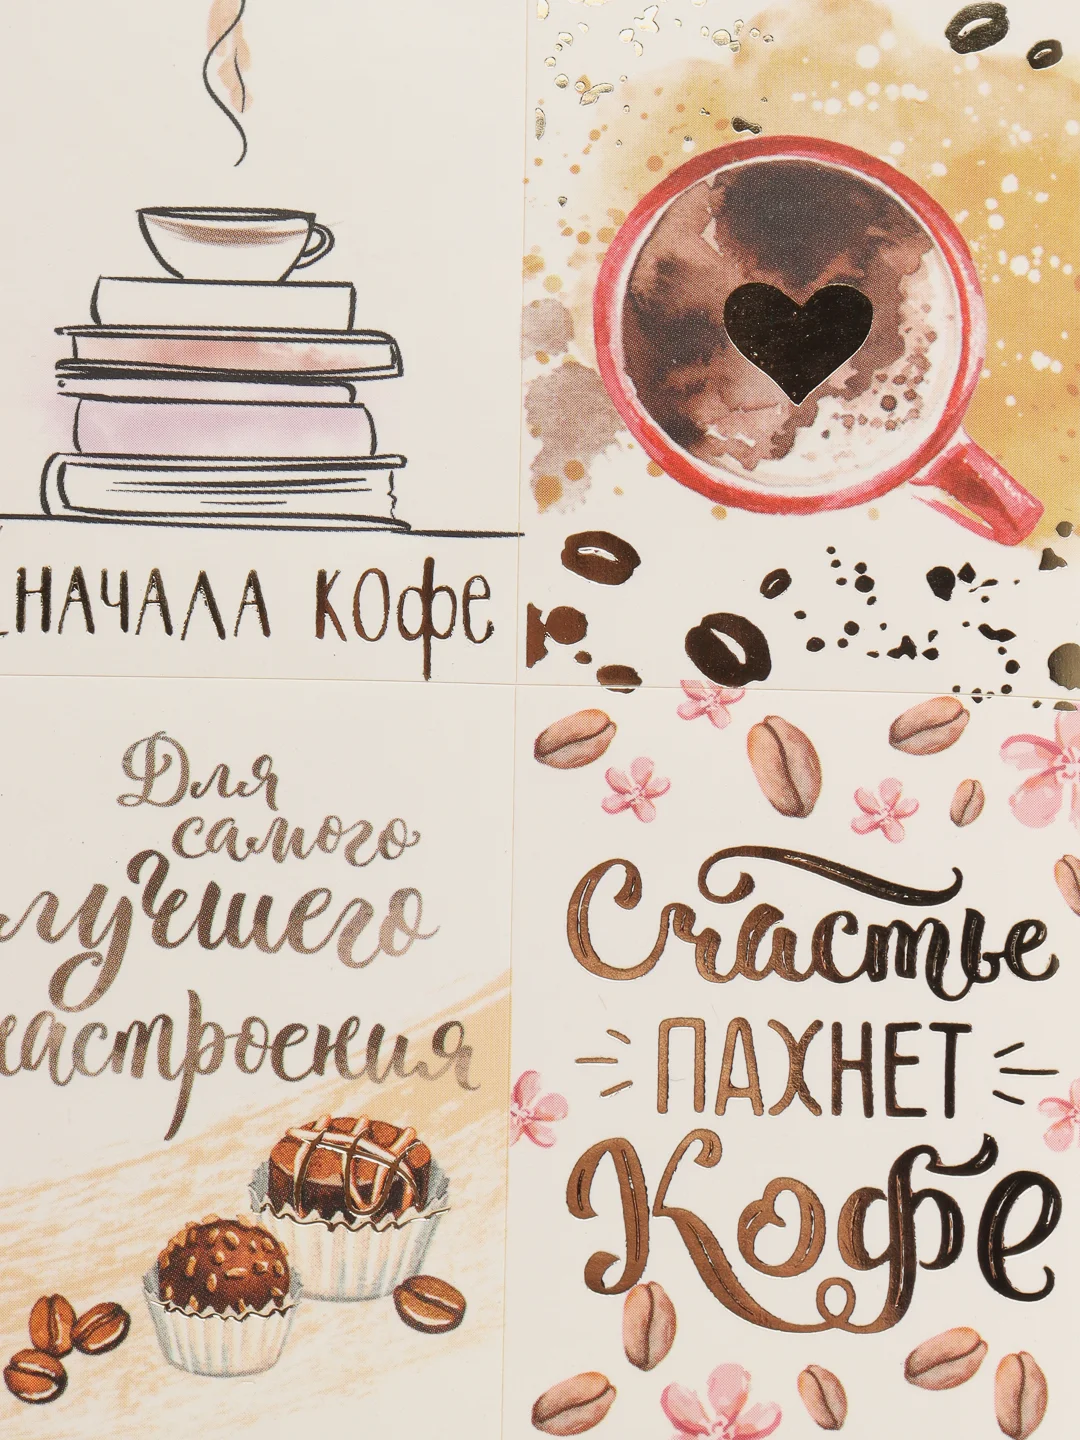 НАЧАЛА КОФЕ
Для
самого
лучшего
настроения
Счастье
ПАХНЕТ
Кофе